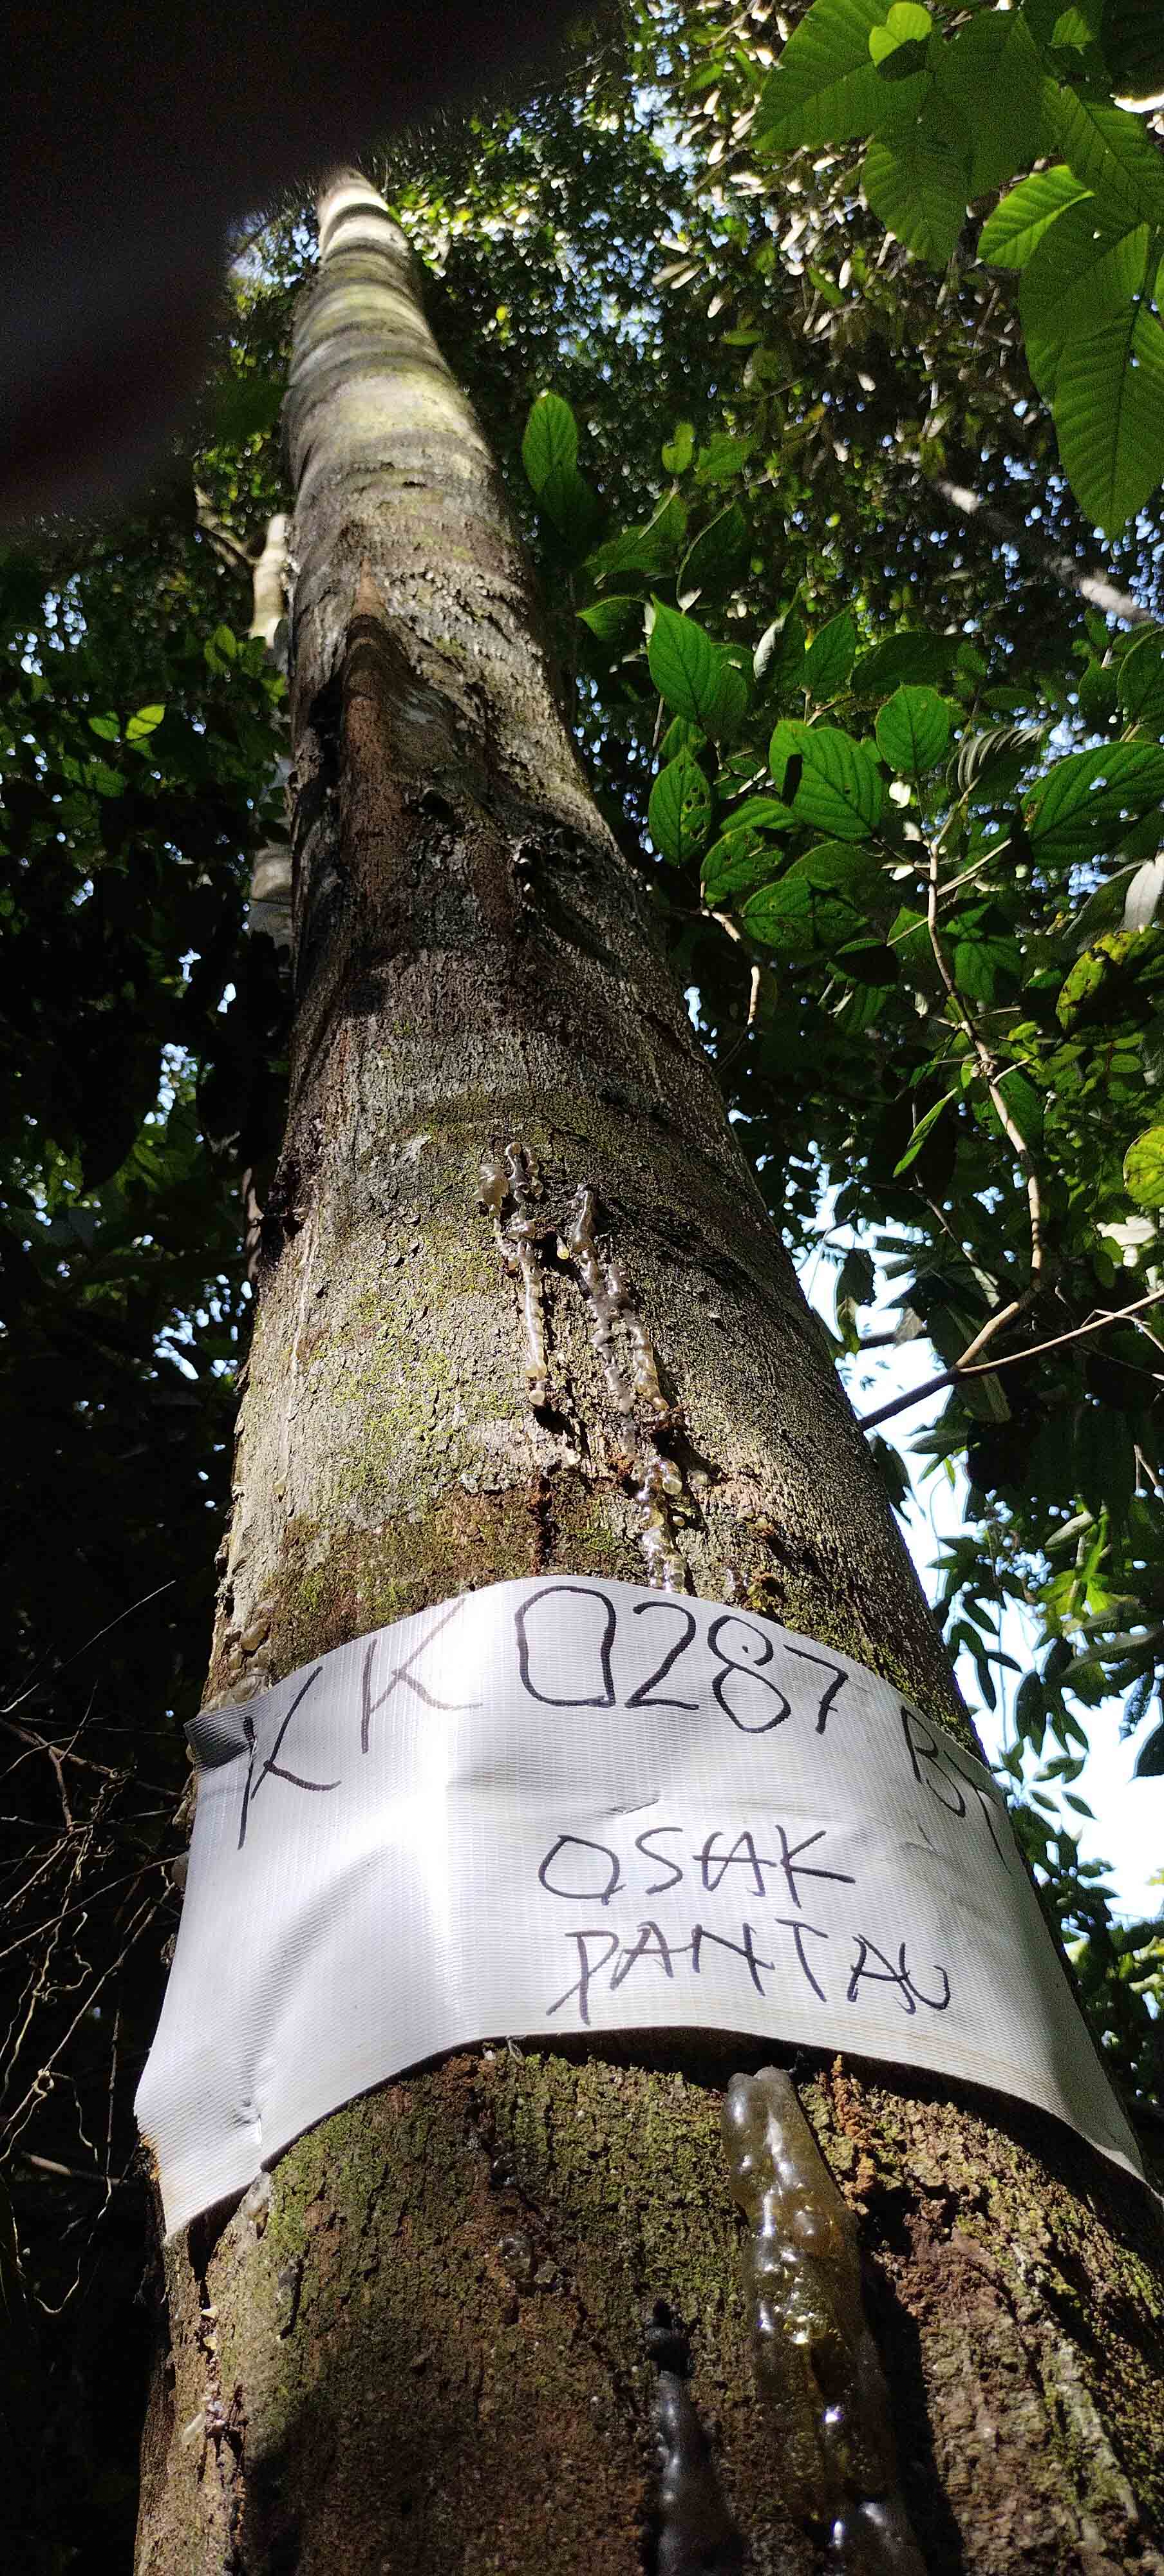 KK 0287
OSAK
PANTAU